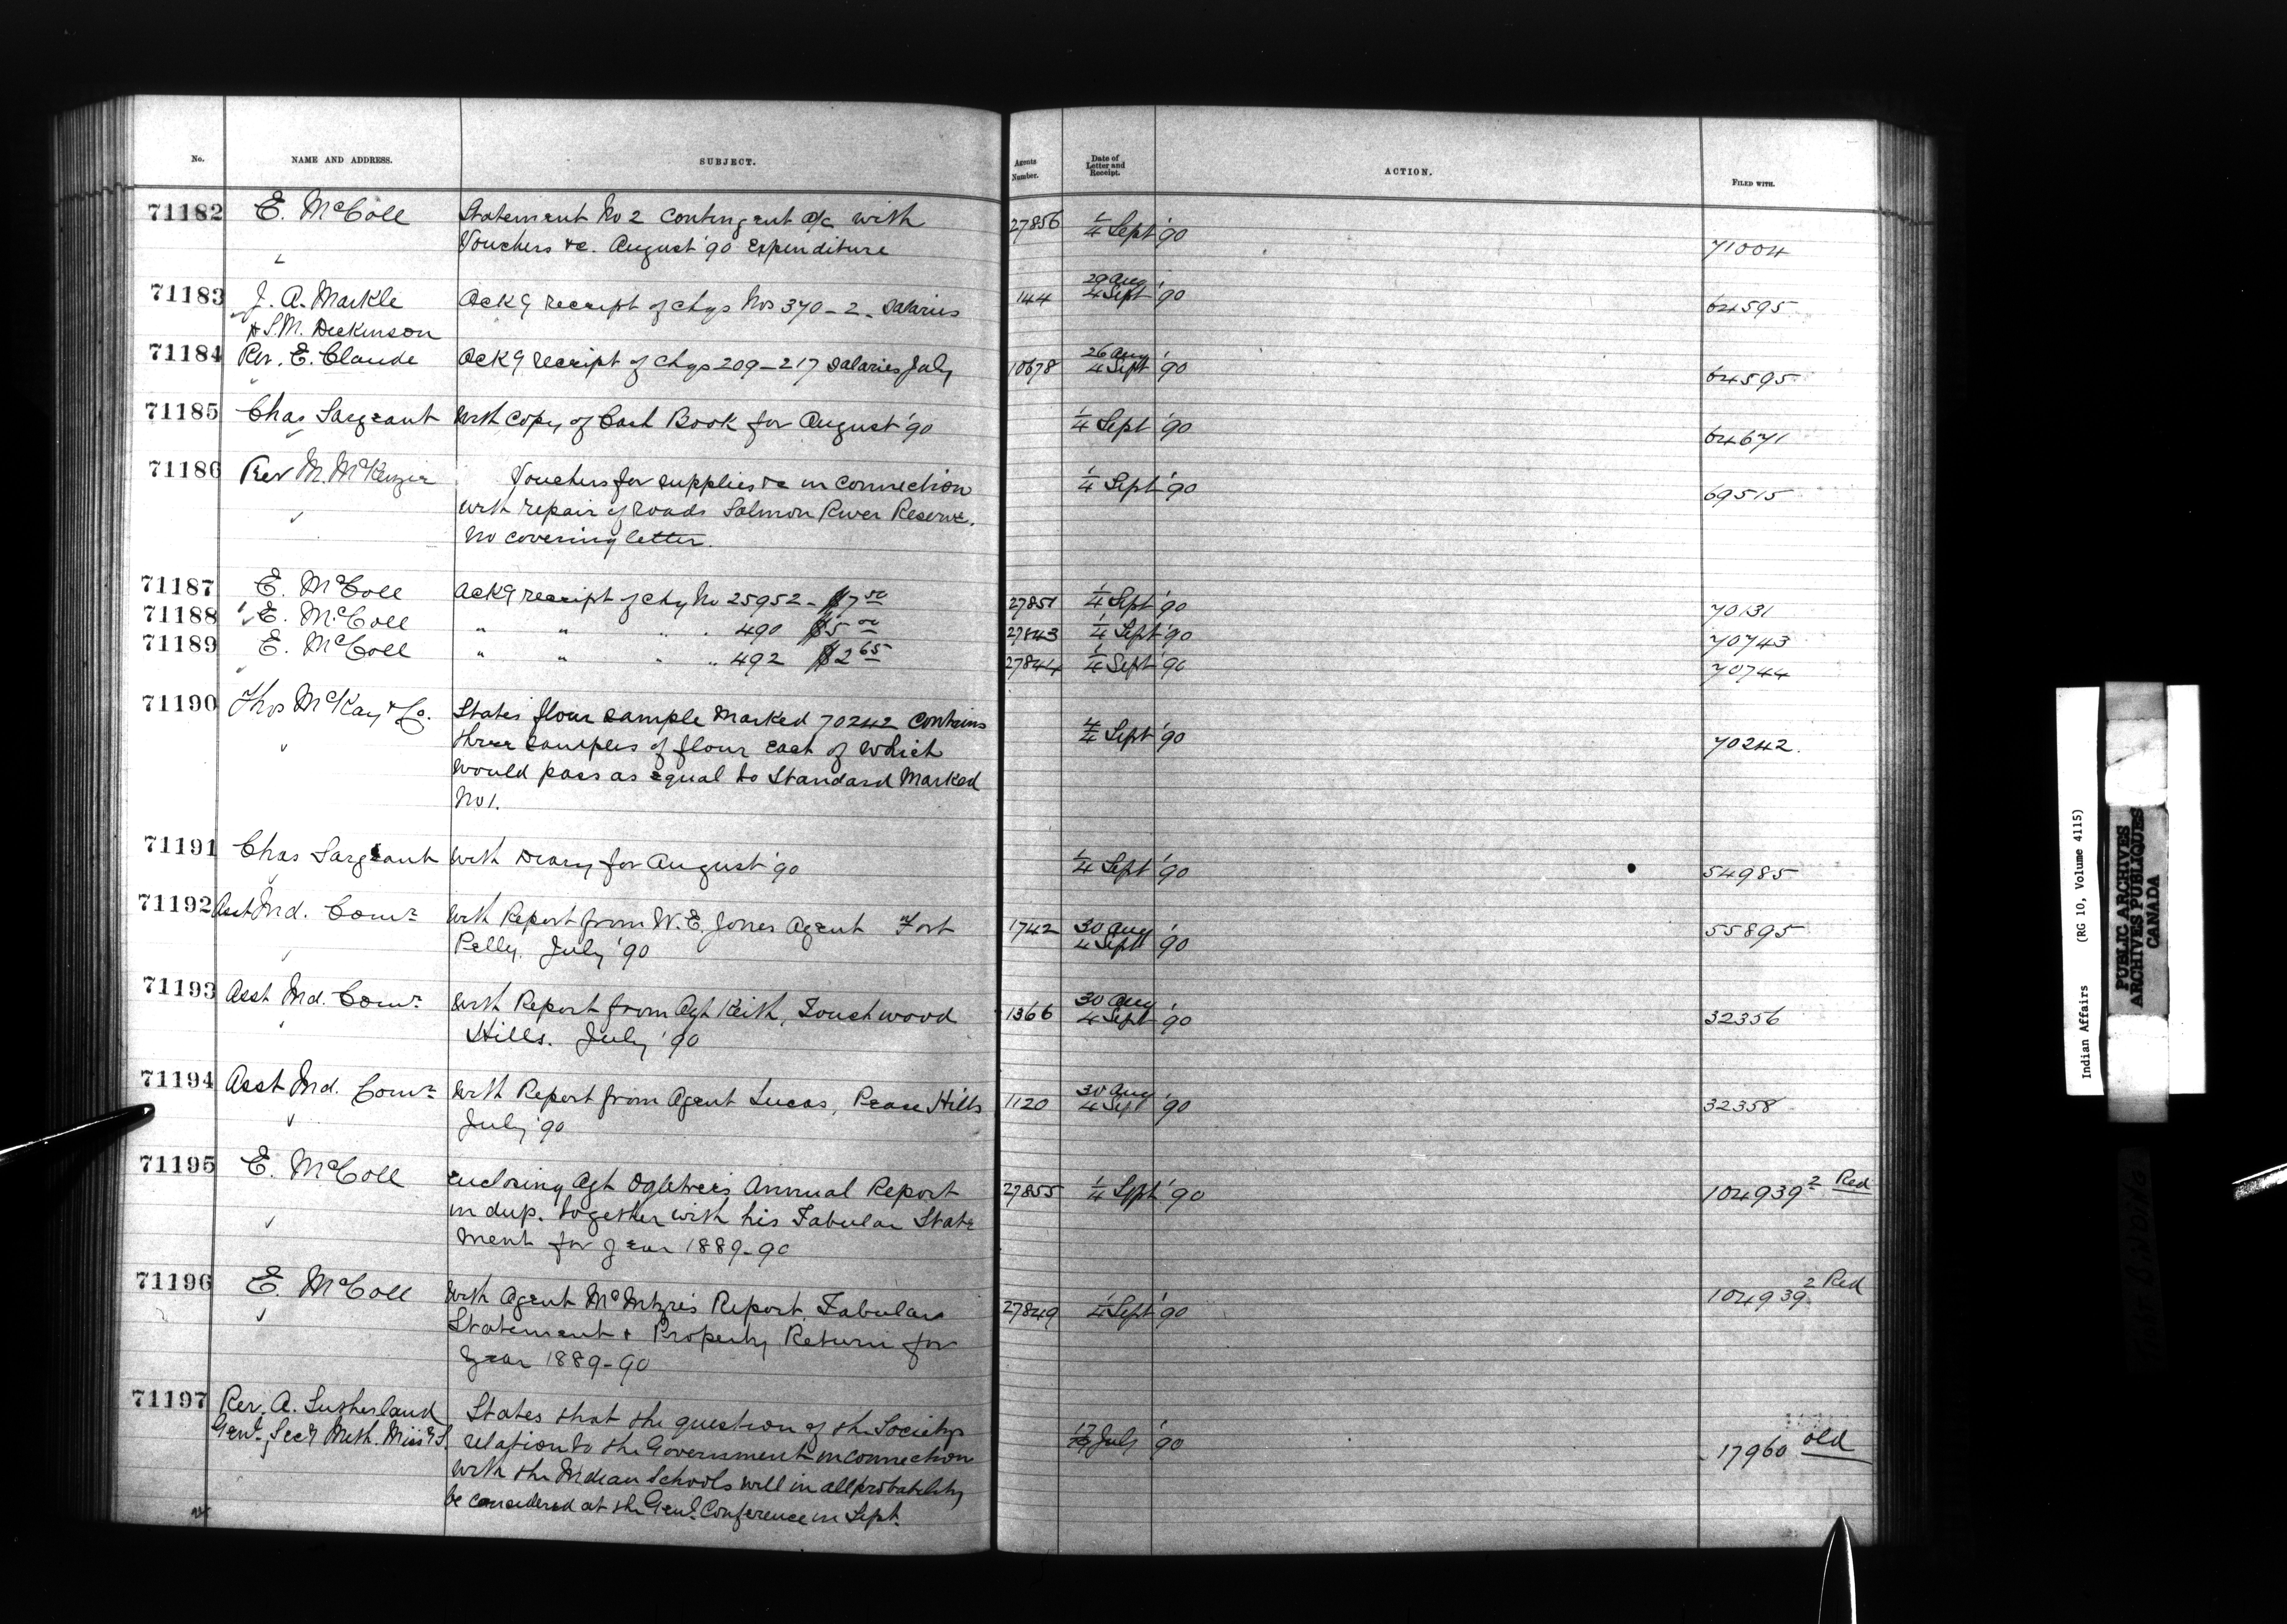 No. NAME AND ADDRESS. SUBJECT. Agents Number. Date of Letter and Receipt. ACTION. FILED WITH.
71182 E. McColl Statement No 2 Contingent a/c with 27856 1/4 Sept '90 71004
Vouchers &c. August '90 Expenditure
71183 J. A. Markle Ack9 receipt of chqs Nos 370-2. Salaries 144 29 Aug 4 Sept '90 64595
& S.M. Dickinson
71184 Rev. E. Claude Ack9 receipt of chqs 209-217 Salaries July 10678 26 Aug 4 Sept '90 64595
71185 Chas Sargeant With copy of Cash Book for August '90 1/4 Sept '90 64671
71186 Rev M. McKenzie Vouchers for supplies &c in connection 1/4 Sept '90 69515
with repair of roads Salmon River Reserve.
No covering letter.
71187 E. McColl Ack9 receipt of chq No 25952 - $7 50 27851 1/4 Sept '90 70131
71188 E. McColl " " " . 490 $5 00 27843 1/4 Sept '90 70743
71189 E. McColl " " " " 492 $2 65 27844 1/4 Sept '90 70744
71190 Thos McKay & Co. States flour sample marked 70242 contains 4/4 Sept '90 70242.
three samples of flour each of which
would pass as equal to Standard Marked
No 1.
71191 Chas Sargeant With Diary for August '90 1/4 Sept '90 54985
71192 Asst Ind. Comr With Report from W. E. Jones Agent Fort 1742 30 Aug 4 Sept '90 55895
Pelly. July '90
71193 Asst Ind. Comr With Report from Agt Keith, Touchwood 1366 30 Aug 4 Sept '90 32356
Hills. July '90
71194 Asst Ind. Comr With Report from Agent Lucas, Peace Hills 1120 30 Aug 4 Sept '90 32358
July '90
71195 E. McColl Enclosing Agt Ogletree's Annual Report 27855 1/4 Sept '90 104939 2 Red
in dup. together with his Tabular State
ment for year 1889-90
71196 E. McColl With Agent McIntyre's Report, Tabular 27849 1/4 Sept '90 104939 2 Red
Statement & Property Return for
Year 1889-90
71197 Rev. A. Sutherland States that the question of the Society's July '90 17960 old
Genl. Secy Meth. Missy S. relation to the Government in connection
with the Indian Schools will in all probability
be considered at the Genl. Conference in Sept.
Indian Affairs (RG 10, Volume 4115)
PUBLIC ARCHIVES
ARCHIVES PUBLIQUES
CANADA